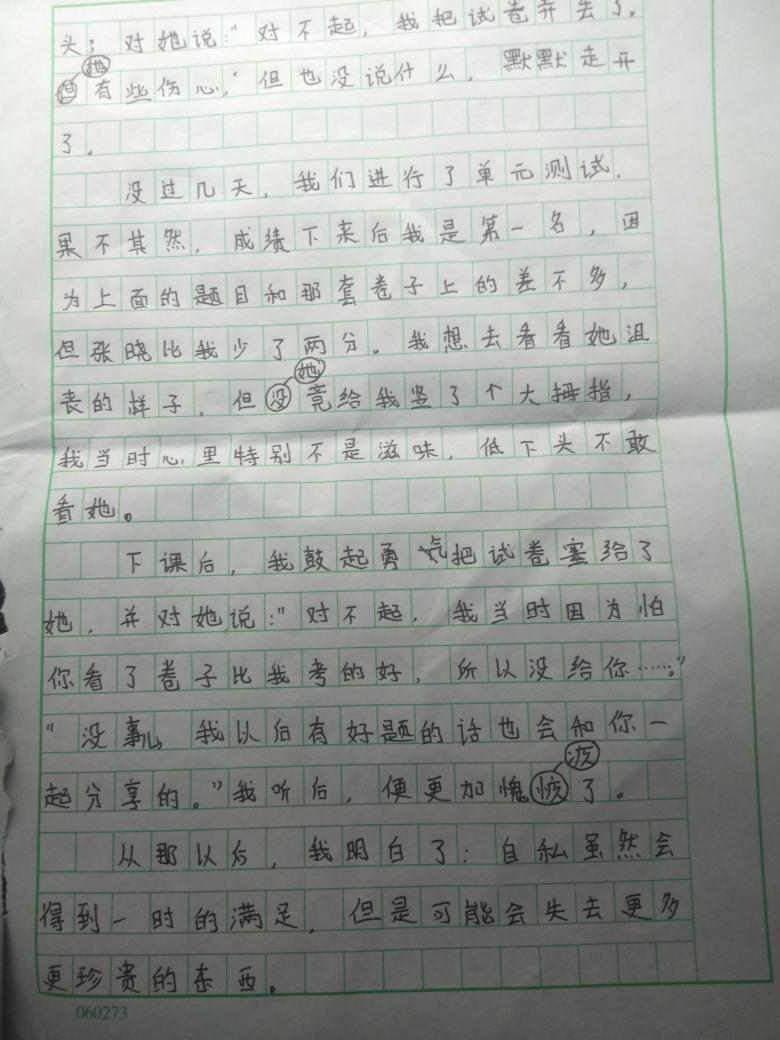 头；对她说：“对不起，我把试卷弄丢了。
她
但有些伤心，”但也没说什么，默默走开
了。
没过几天，我们进行了单元测试，
果不其然，成绩下来后我是第一名，因
为上面的题目和那套卷子上的差不多，
但张晓比我少了两分。我想去看看她沮
她
丧的样子，但没竟给我竖了个大拇指，
我当时心里特别不是滋味，低下头不敢
看她。
下课后，我鼓起勇气把试卷塞给了
她，并对她说：“对不起，我当时因为怕
你看了卷子比我考的好，所以没给你……”
“没事儿，我以后有好题的话也会和你一
疚
起分享的。”我听后，便更加愧了。
从那以后，我明白了：自私虽然会
得到一时的满足，但是可能会失去更多
更珍贵的东西。
060273